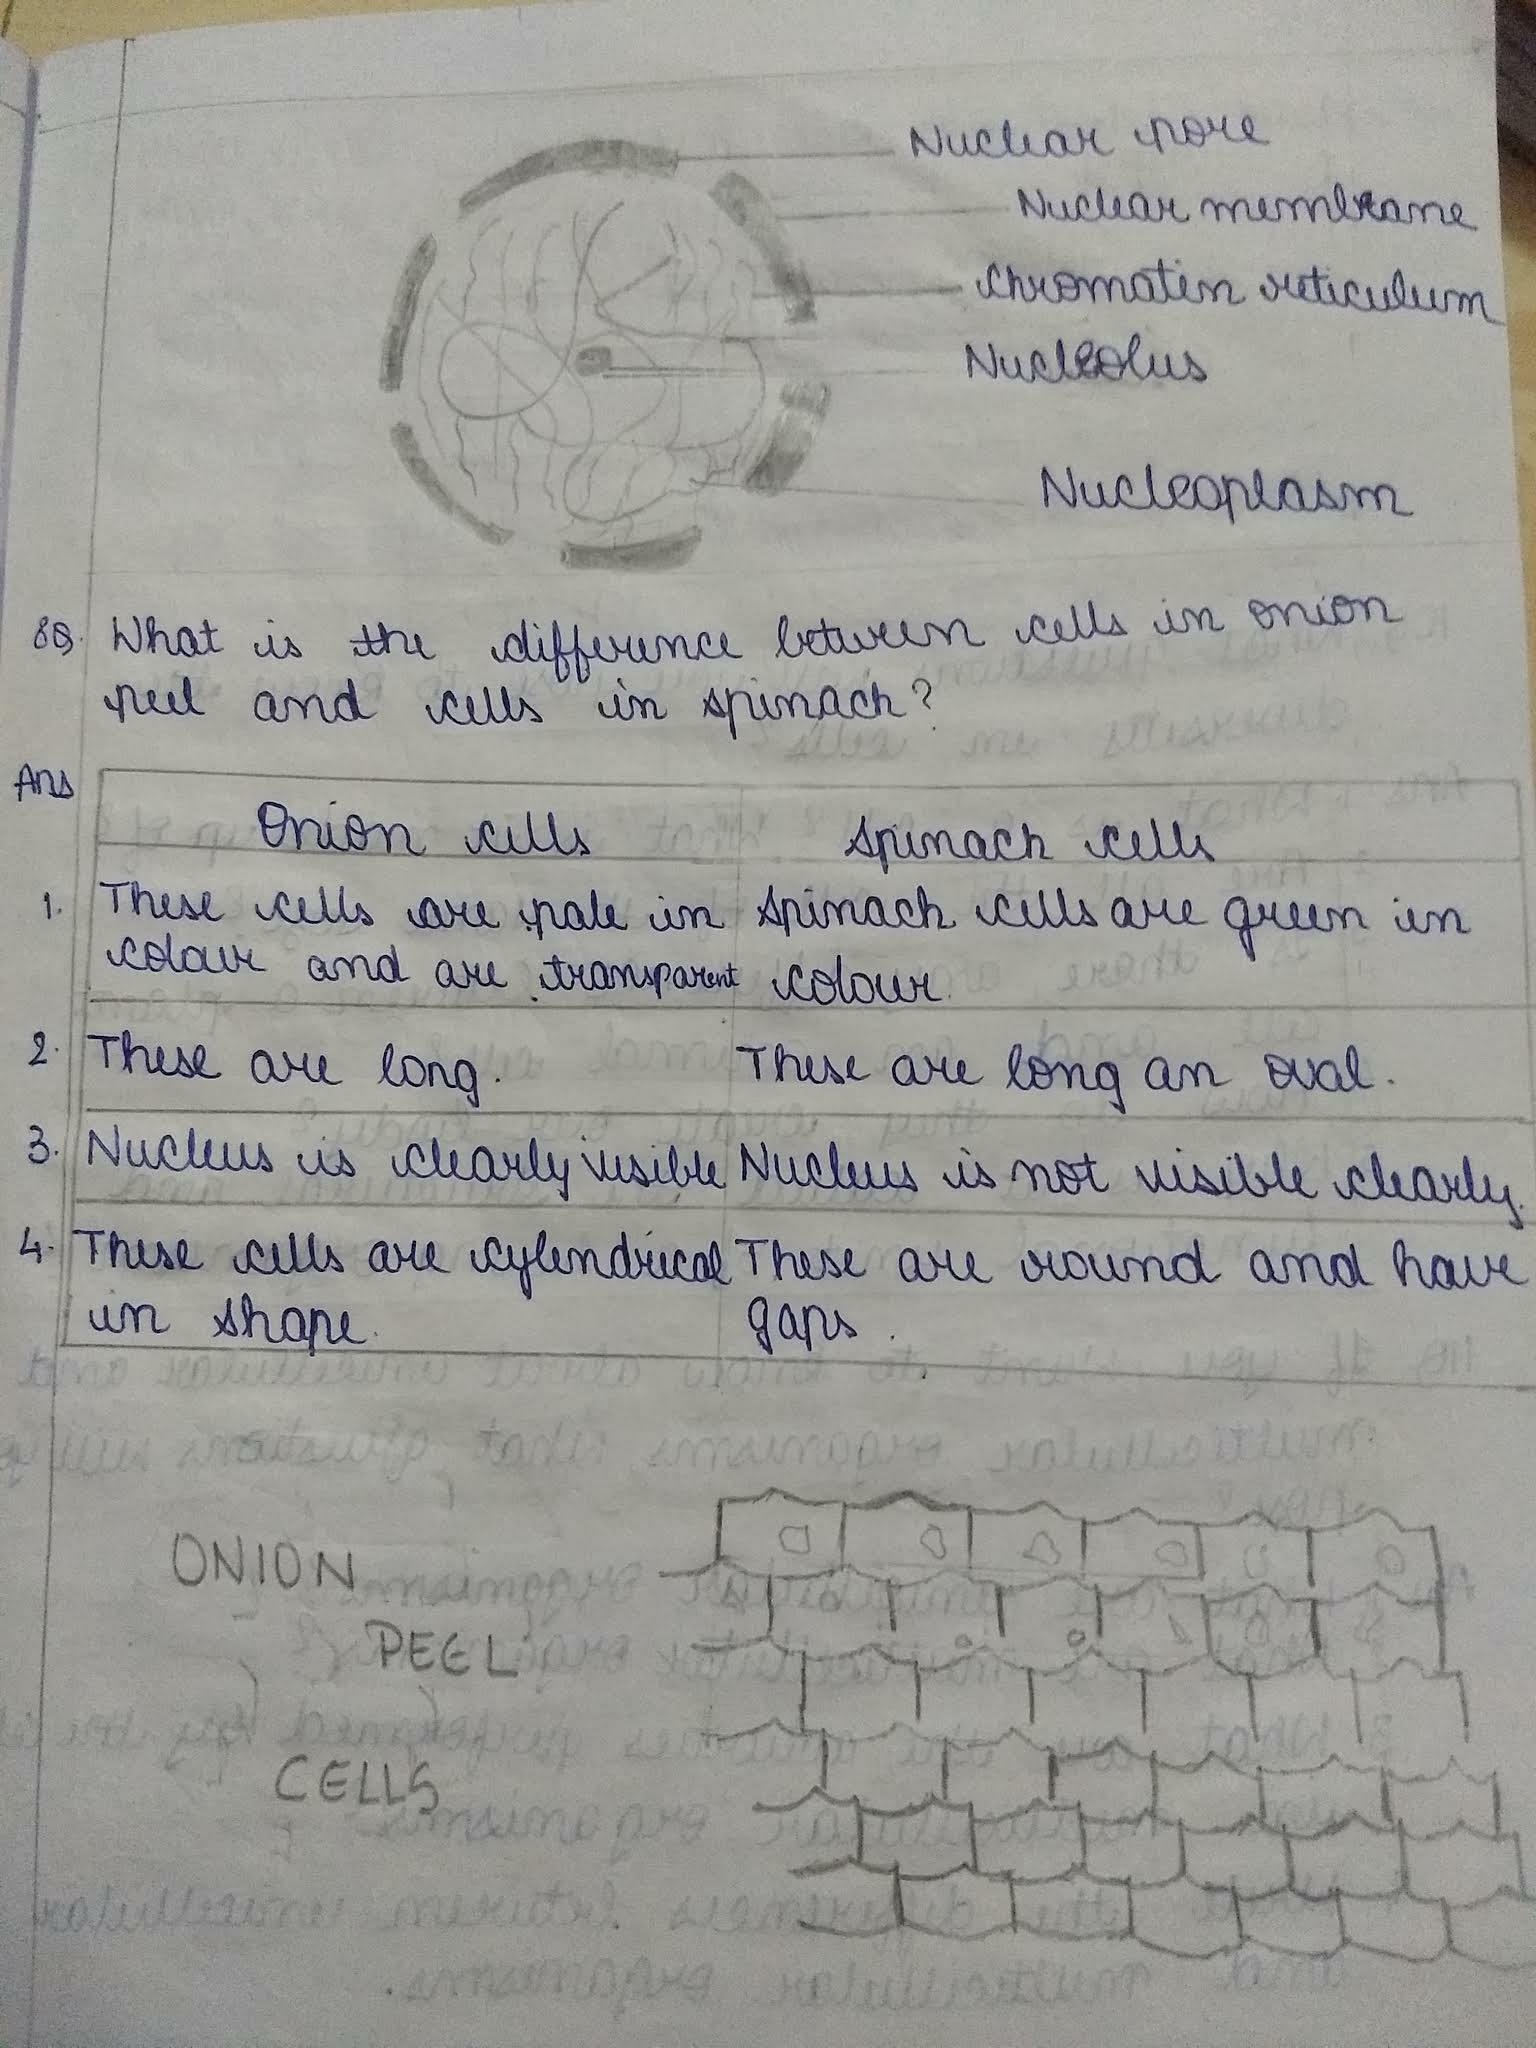 Nuclear pore
Nuclear membrane
Chromatin reticulum
Nucleolus
Nucleoplasm
8Q. What is the difference between cells in onion
peel and cells in spinach?
Ans
Onion cells Spinach cells
1. These cells are pale in Spinach cells are green in
colour and are transparent colour.
2. These are long. These are long an oval.
3. Nucleus is clearly visible Nucleus is not visible clearly.
4. These cells are cylendrical These are round and have
in shape. gaps.
ONION
PEEL
CELLS